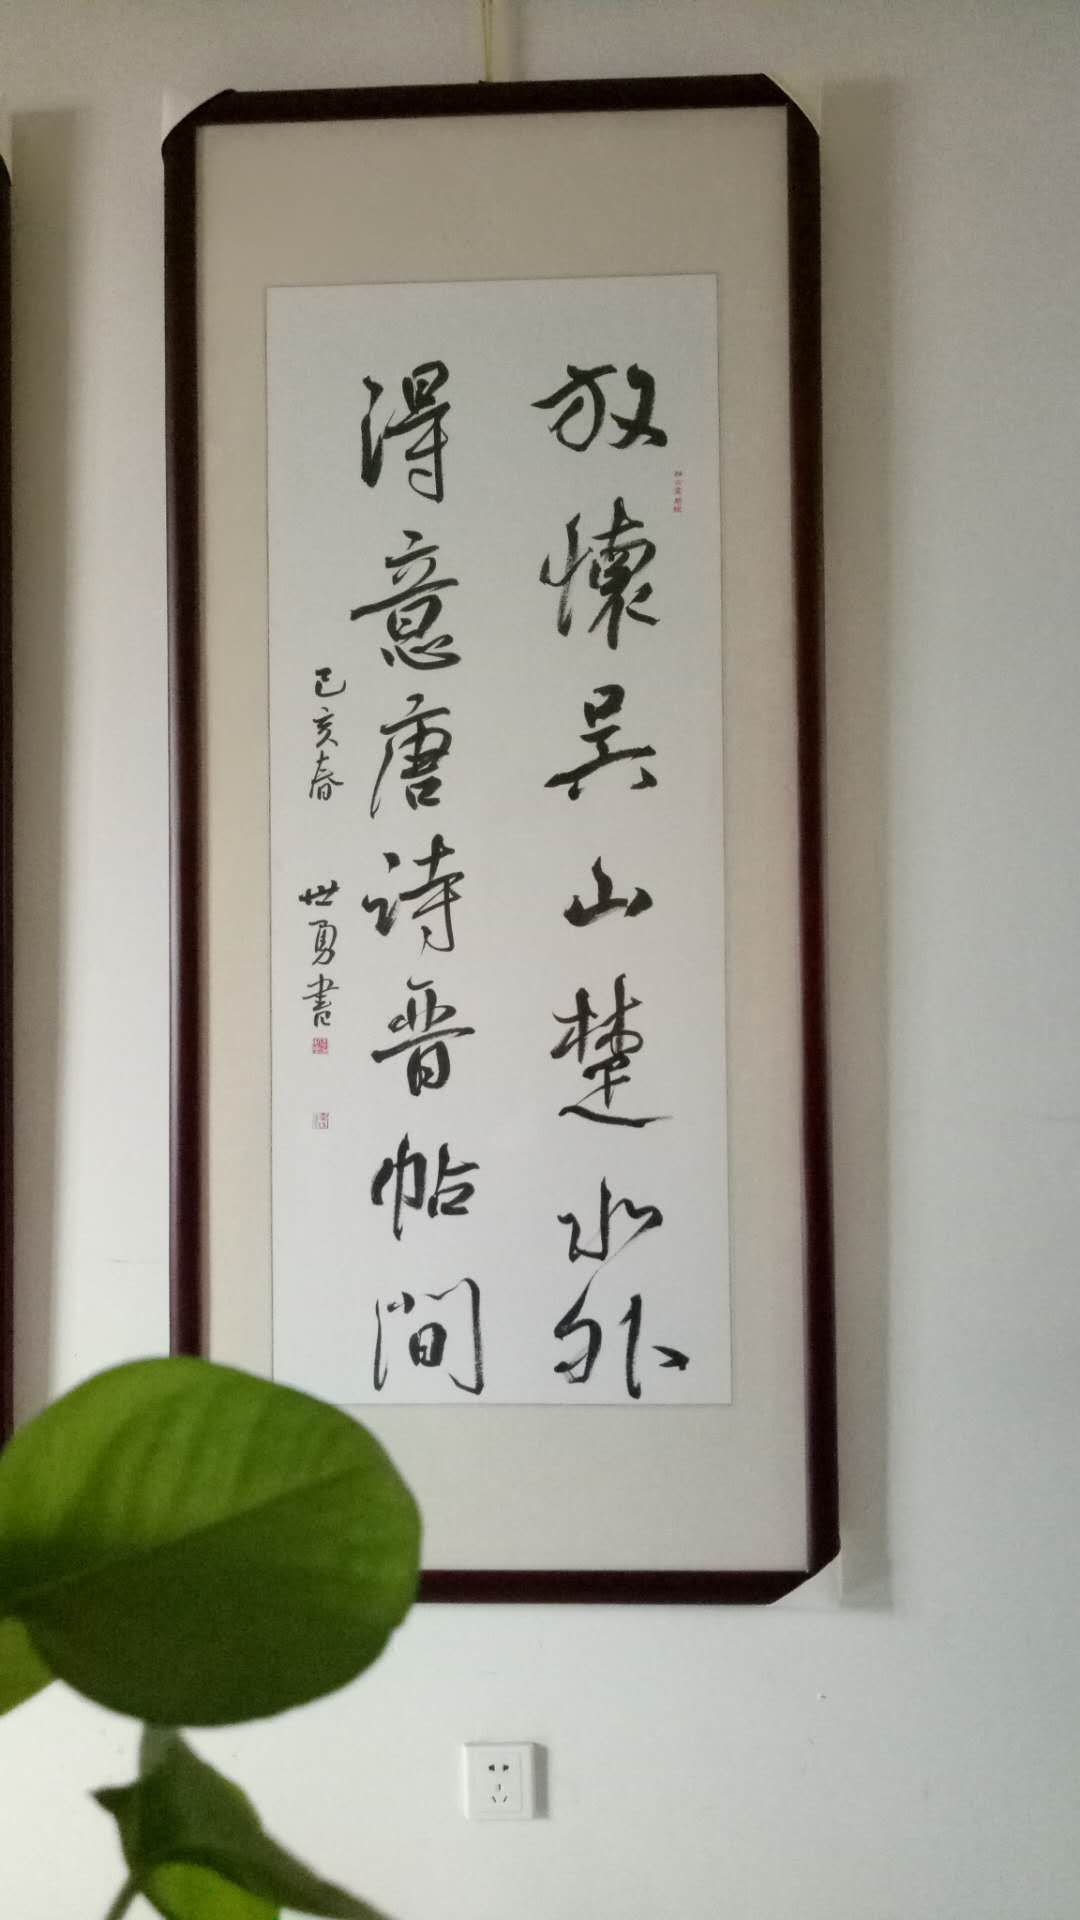 放懷吴山楚水外
得意唐詩晋帖間
己亥春 世勇書